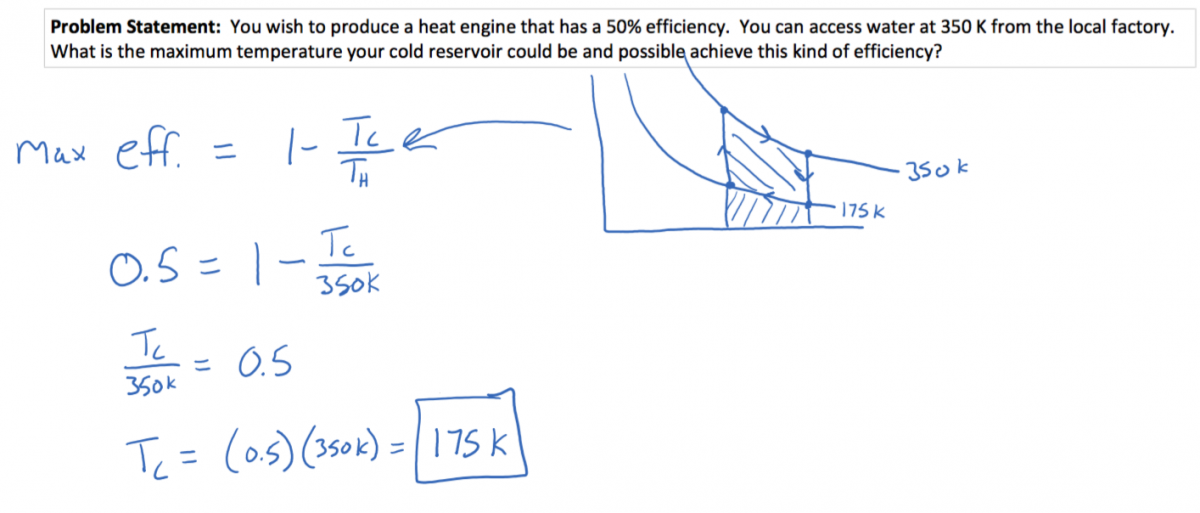 Problem Statement: You wish to produce a heat engine that has a 50% efficiency. You can access water at 350 K from the local factory.
What is the maximum temperature your cold reservoir could be and possible achieve this kind of efficiency?
Max eff. = 1 - Tc/TH
350k
175 K
0.5 = 1 - Tc/350K
Tc/350k = 0.5
Tc = (0.5)(350k) = 175 K